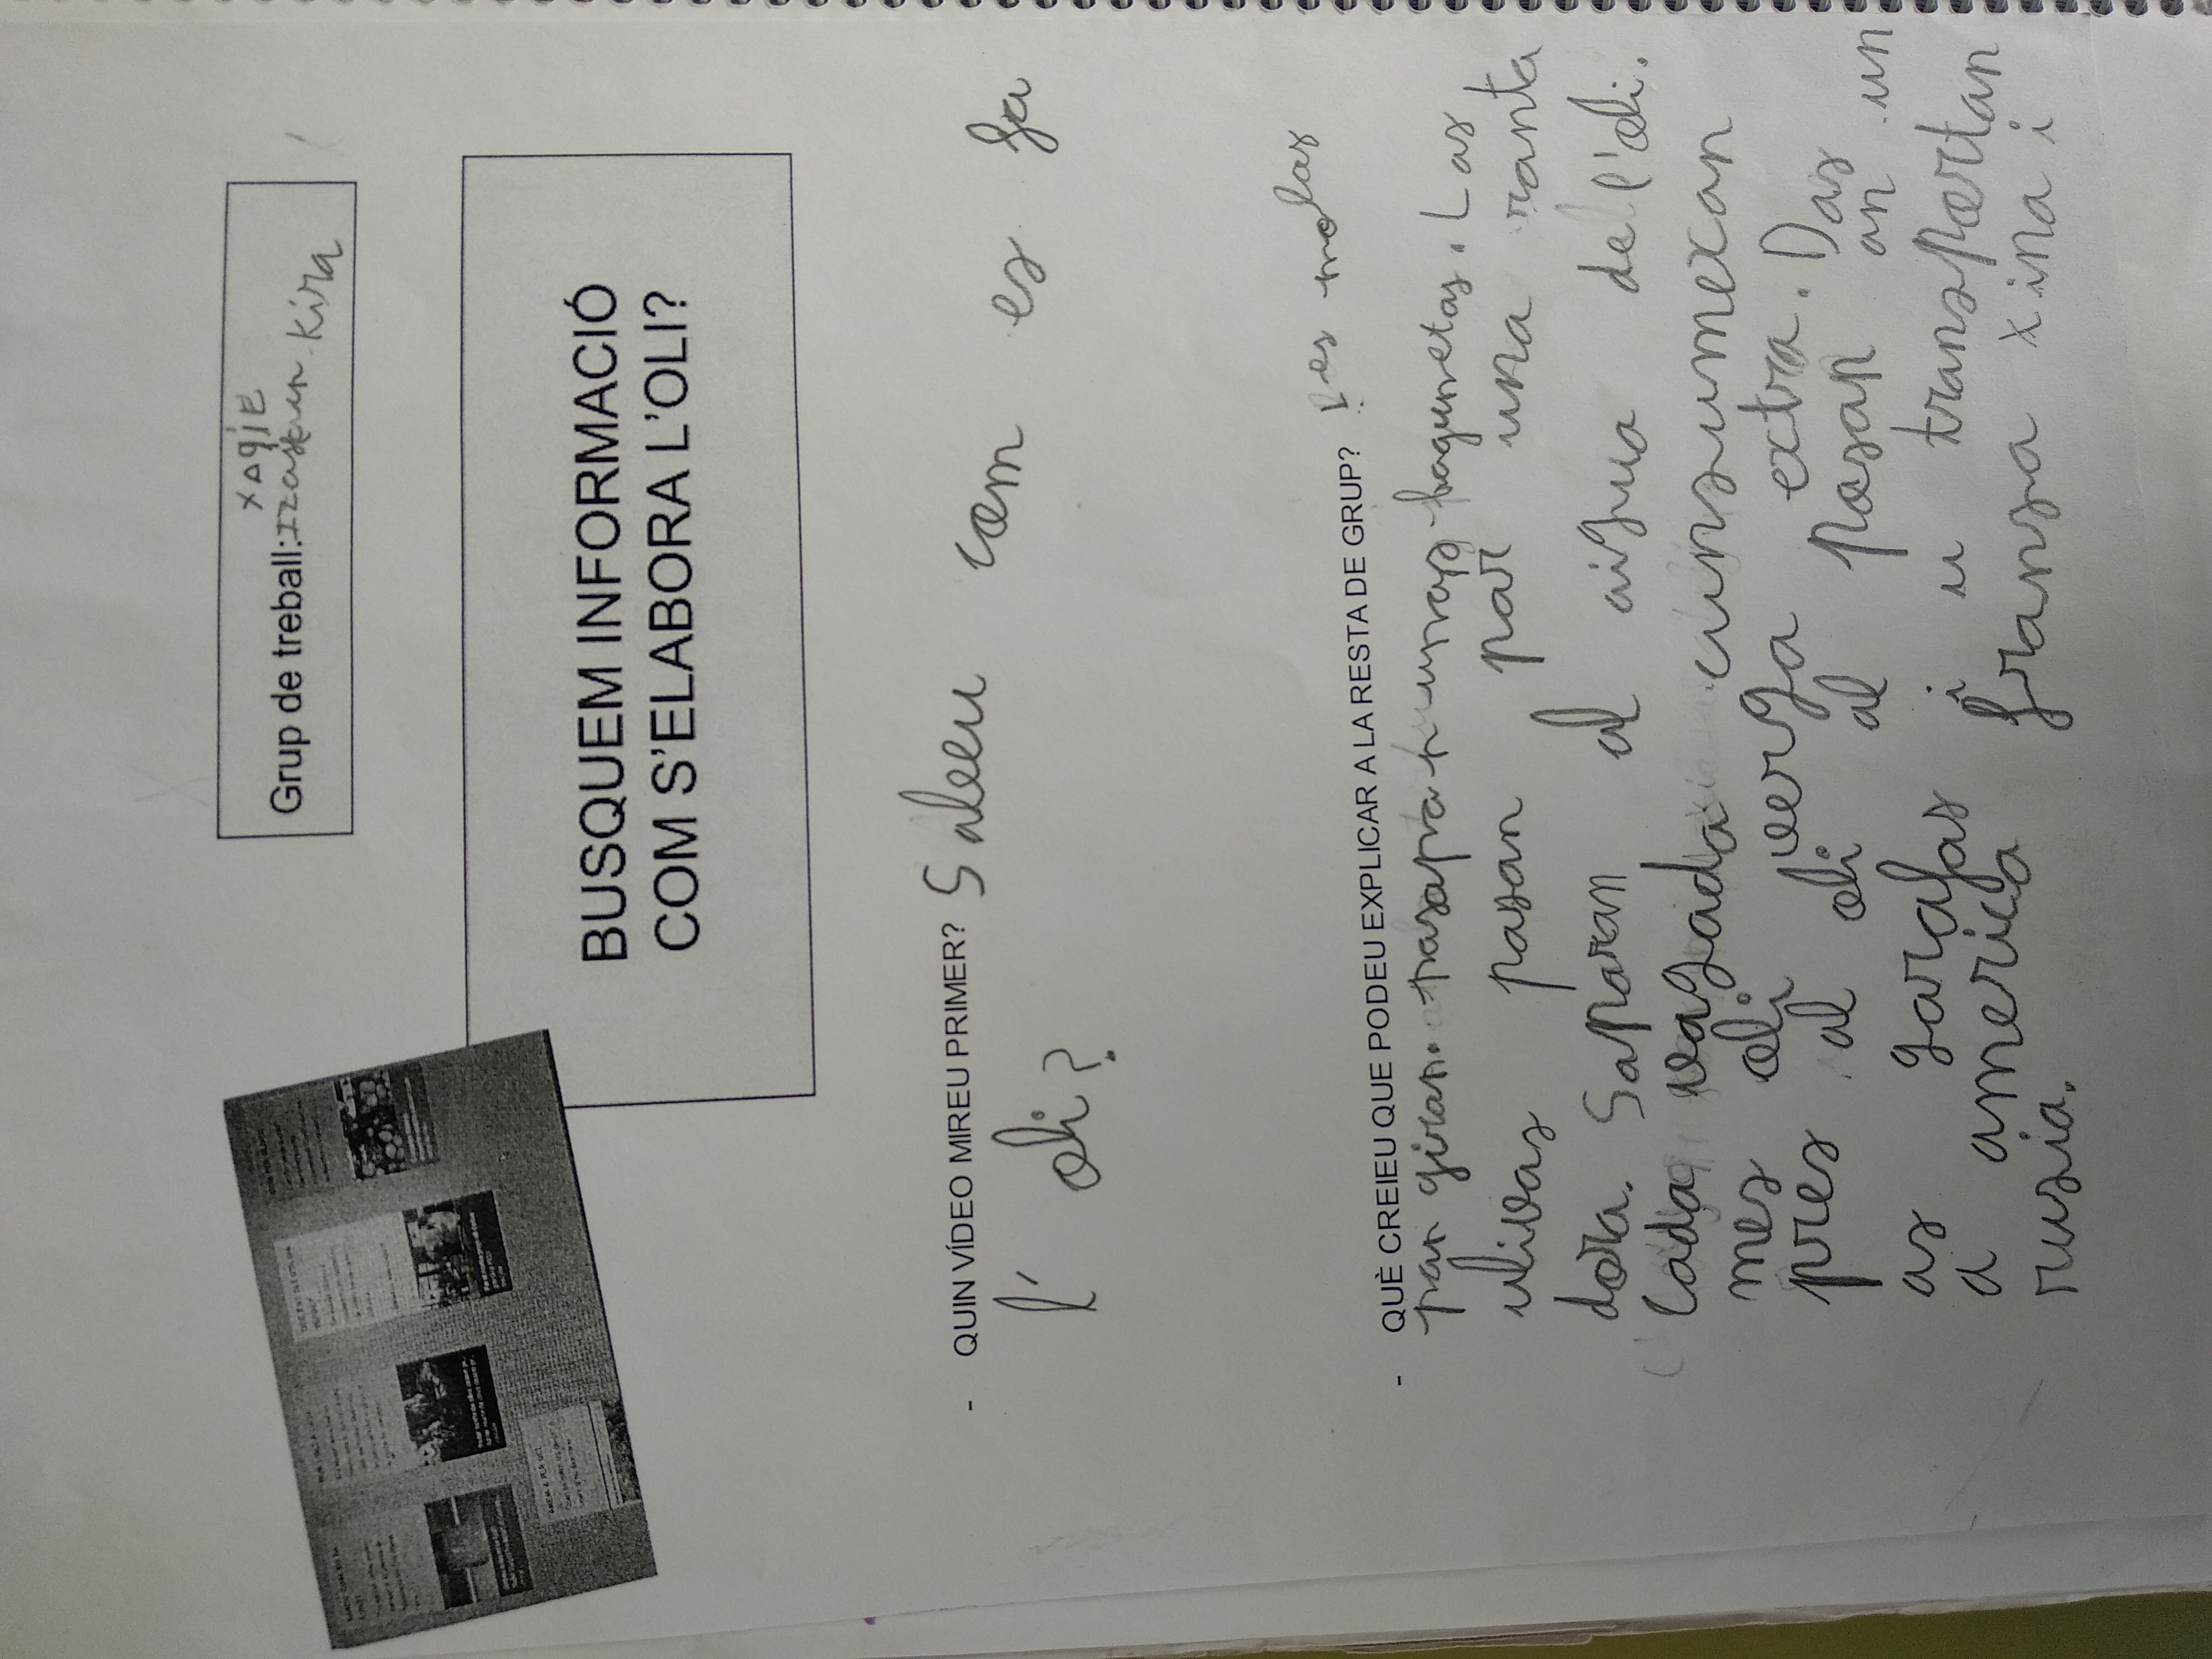 XAGIE
Grup de treball: Kira
BUSQUEM INFORMACIÓ
COM S'ELABORA L'OLI?
- QUIN VÍDEO MIREU PRIMER? Sabeu com es fa
l'oli?
- QUÈ CREIEU QUE PODEU EXPLICAR A LA RESTA DE GRUP? Les molas
pan giran. Las
ulivas pasan par una ranta
dora. Saparan al aigua de l'oli.
Cada vagada cunsumexan
mes oli verga extra. Das
pres al oli al posan an un
as garafas i u transportan
a america fransa xina i
rusia.